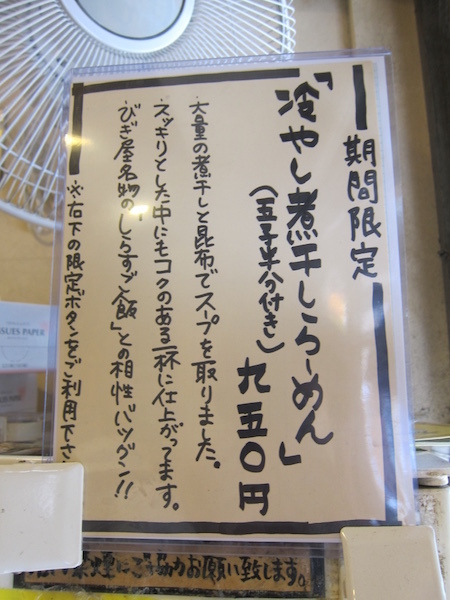 期間限定
「冷やし煮干しらーめん」
（玉子半分付き）九五〇円
大量の煮干しと昆布でスープを取りました。
スッキリとした中にもコクのある一杯に仕上がってます。
びぎ屋名物の「しらすご飯」との相性バツグン!!
※右下の限定ボタンをご利用下さ
SUES PAPER
禁煙にご協力お願い致します。